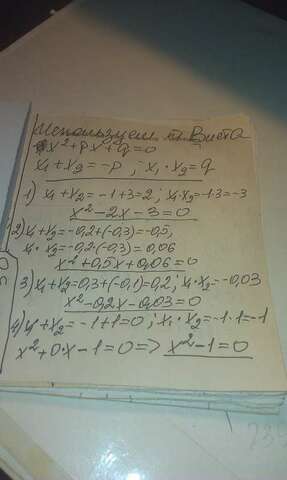 Используем т. Виета
x²+px+q=0
x₁+x₂=-p ; x₁·x₂=q
1) x₁+x₂=-1+3=2; x₁·x₂=-1·3=-3
x²-2x-3=0
2) x₁+x₂=-0,2+(-0,3)=-0,5,
x₁·x₂=-0,2·(-0,3)=0,06
x²+0,5x+0,06=0
3) x₁+x₂=0,3+(-0,1)=0,2; x₁·x₂=-0,03
x²-0,2x-0,03=0
4) x₁+x₂=-1+1=0; x₁·x₂=-1·1=-1
x²+0·x-1=0=> x²-1=0